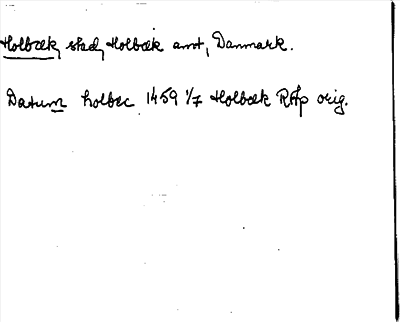 Holbæk, stad, Holbæk amt, Danmark.
Datum holbec 1459 1/7 Holbæk RAp orig.